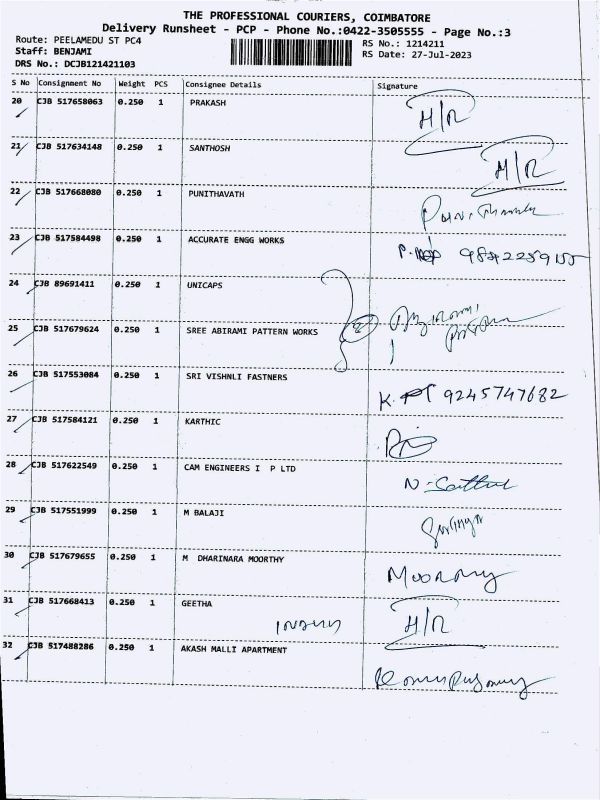 THE PROFESSIONAL COURIERS, COIMBATORE
Delivery Runsheet - PCP - Phone No.:0422-3505555 - Page No.:3
Route: PEELAMEDU ST PC4
RS No.: 1214211
Staff: BENJAMI
RS Date: 27-Jul-2023
DRS No.: DCJB121421103
S No Consignment No Weight PCS Consignee Details Signature
20 CJB 517658063 0.250 1 PRAKASH H/R
21 CJB 517634148 0.250 1 SANTHOSH H/R
22 CJB 517668080 0.250 1 PUNITHAVATH
23 CJB 517584498 0.250 1 ACCURATE ENGG WORKS 9842259155
24 CJB 89691411 0.250 1 UNICAPS
25 CJB 517679624 0.250 1 SREE ABIRAMI PATTERN WORKS
26 CJB 517553084 0.250 1 SRI VISHNLI FASTNERS 9245747682
27 CJB 517584121 0.250 1 KARTHIC
28 CJB 517622549 0.250 1 CAM ENGINEERS I P LTD
29 CJB 517551999 0.250 1 M BALAJI
30 CJB 517679655 0.250 1 M DHARINARA MOORTHY
31 CJB 517668413 0.250 1 GEETHA H/R
32 CJB 517488286 0.250 1 AKASH MALLI APARTMENT